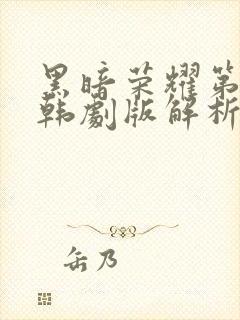 黑暗荣耀第
韩劇版解析
缶乃